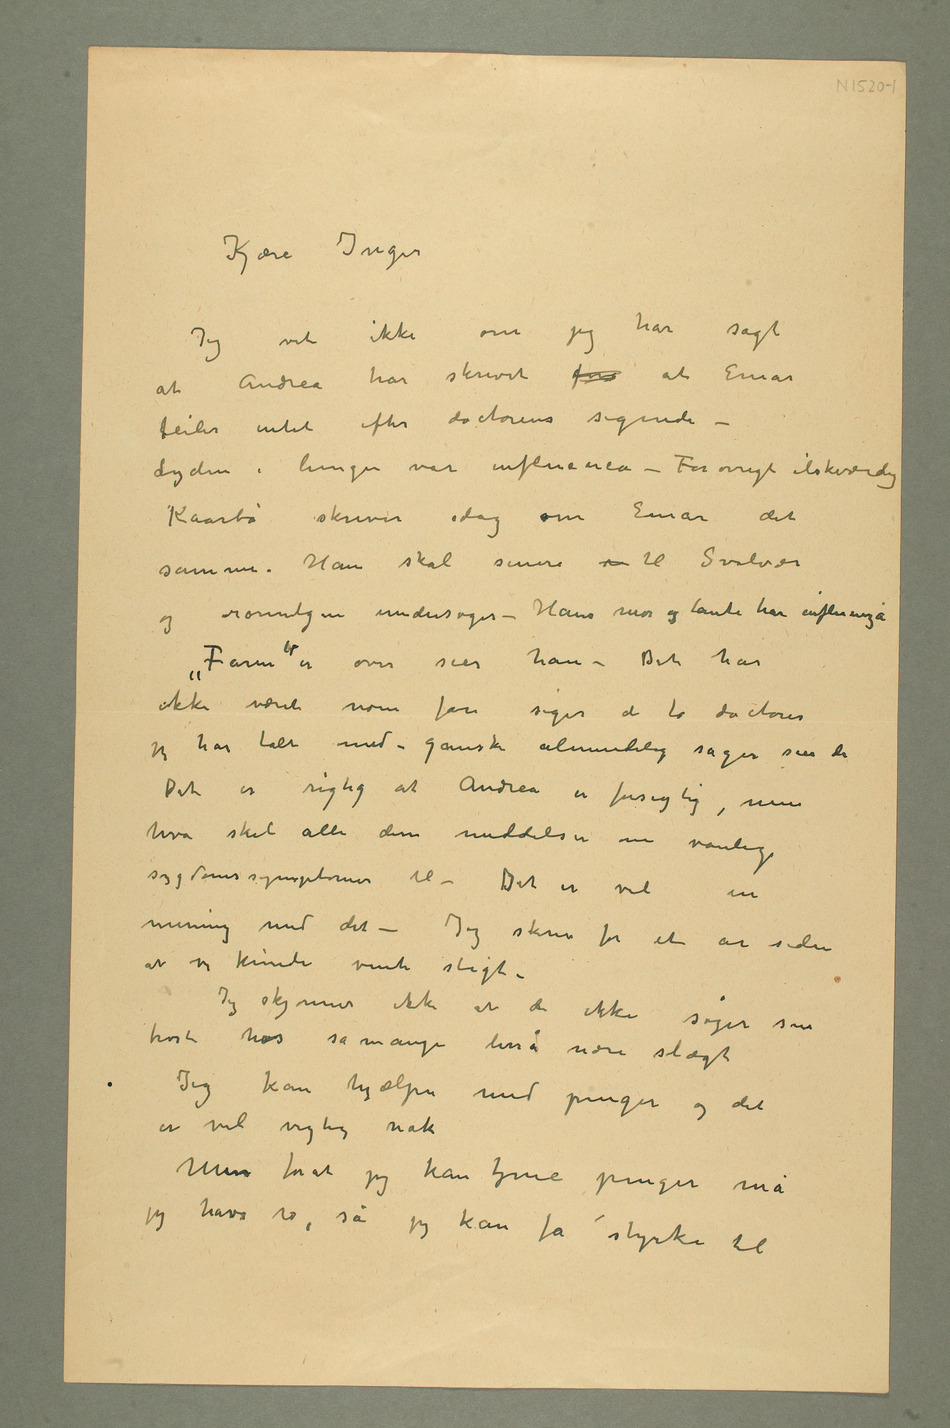 N1520-1
Kjære Inger
Jeg vet ikke om jeg har sagt
at Andrea har skrevet at Einar
feiler intet efter doctorens sigende –
Lyden i lungen var influensa – Forøvrigt elskværdig
Kaarbø skriver idag om Einar det
samme. Han skal senere til Svolvær
og røntgen undersøges – Hans mor og tante har influenza
„Faren“ er over sier han – Det har
ikke været noen fare siger de to doctorer
jeg har talt med – ganske almindelig sager sier de
Det er rigtig at Andrea er forsigtig, men
hva skal alle dem meddelser om vanlige
sygdomssymptomer til – Det er vel en
mening med det – Jeg skrev for et år siden
at vi kunde vente sligt –
Jeg skjønner ikke at de ikke søger sin
trøst hos så mange nære slægt
Jeg kan hjælpe med penger og det
er vel vigtig nok
Men forat jeg kan tjene penger må
jeg have ro, så jeg kan få styrke til